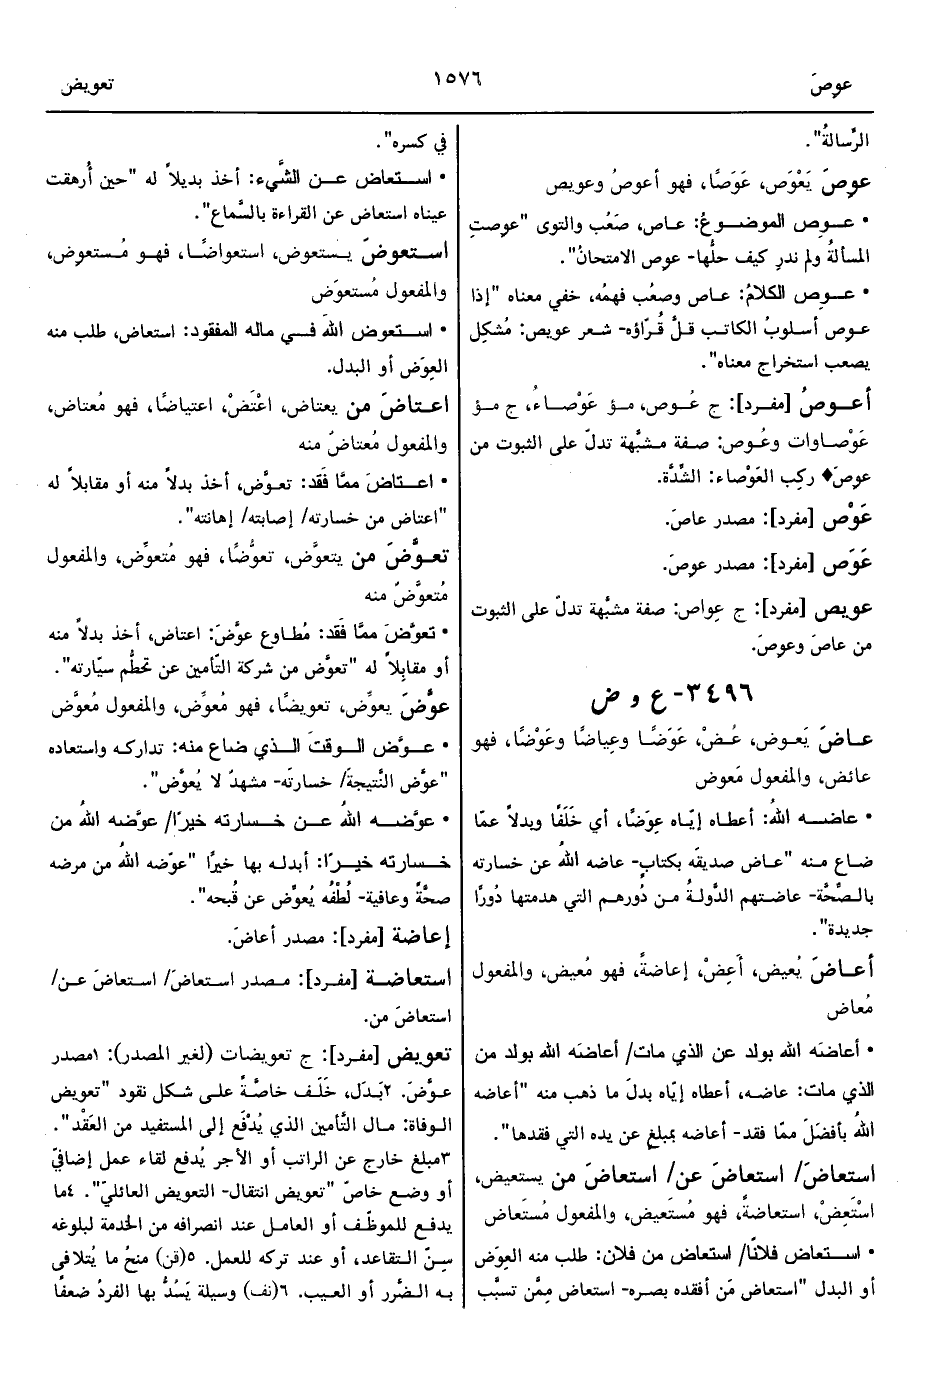 عوصَ
١٥٧٦
تعويض
الرِّسالةُ".
عوِصَ يَعْوَص، عَوَصًا، فهو أعوصُ وعويص
• عـوِص الموضـوعُ: عـاص، صَعُب والتوى "عوِصتِ
المسألةُ ولم ندرِ كيف حلُّها- عوِص الامتحانُ".
• عـوِص الكلامُ: عـاص وصعُب فهمُه، خفي معناه "إذا
عوِص أسلوبُ الكاتب قلَّ قُرّاؤه- شعر عويص: مُشكِل
يصعب استخراج معناه".
أعــوصُ [مفـرد]: ج عُـوص، مـؤ عَوْصـاءُ، ج مـؤ
عَوْصـاوات وعُـوص: صـفة مـشبَّهة تدلّ على الثبوت من
عوِصَ♦ ركِب العَوْصاء: الشِّدَّة.
عَوْص [مفرد]: مصدر عاصَ.
عَوَص [مفرد]: مصدر عوِصَ.
عويص [مفرد]: ج عِواص: صفة مشبَّهة تدلّ على الثبوت
من عاصَ وعوِصَ.
٣٤٩٦- ع و ض
عـاضَ يَعـوض، عُـضْ، عَوَضًـا وعِياضًا وعَوْضًا، فهو
عائض، والمفعول مَعوض
• عاضــه اللهُ: أعطـاه إيّـاه عِوَضًا، أي خَلَفًا وبدلاً عمّا
ضـاع مـنه "عـاض صديقَه بكتابٍ- عاضه اللهُ عن خسارته
بالـصِّحَّة- عاضـتهم الدَّولةُ مـن دُورهـم التي هدمتها دُورًا
جديدة".
أعـاضَ يُعيض، أَعِضْ، إعاضةً، فهو مُعيض، والمفعول
مُعاض
• أعاضَه الله بولد عن الذي مات/ أعاضَه الله بولد من
الذي مات: عاضه، أعطاه إيّاه بدلَ ما ذهب منه "أعاضه
اللهُ بأفضلَ ممّا فقد- أعاضه بمبلغٍ عن يده التي فقدها".
استعاضَ/ استعاضَ عن/ استعاضَ من يستعيض،
اسْتَعِضْ، استعاضةً، فهو مُستَعيض، والمفعول مُستَعاض
• اسـتعاض فلانًا/ استعاض من فلان: طلب منه العِوَض
أو البدل "استعاض مَن أفقده بصره- استعاض مِمَّن تسبَّب
في كسره".
• اسـتعاض عـن الشَّيء: أخذ بديلاً له "حين أُرهقت
عيناه استعاض عن القراءة بالسَّماع".
استعوضَ يـستعوض، استعواضًـا، فهـو مُـستعوِض،
والمفعول مُستعوَض
• اسـتعوض اللهَ فـي ماله المفقود: استعاض، طلب منه
العِوَض أو البدل.
اعـتاضَ من يعتاض، اعْتَضْ، اعتياضًا، فهو مُعتاض،
والمفعول مُعتاضٌ منه
• اعـتاضَ ممَّا فَقَد: تعوَّض، أخذ بدلاً منه أو مقابلاً له
"اعتاض من خسارته/ إصابته/ إهانته".
تعـوَّضَ من يتعوَّض، تعوُّضًا، فهو مُتعوِّض، والمفعول
مُتعوَّضٌ منه
• تعوَّضَ ممَّا فَقَد: مُطـاوع عوَّضَ: اعتاض، أخذ بدلاً منه
أو مقابِلاً له "تعوَّض من شركة التَّأمين عن تحطُّم سيّارته".
عوَّضَ يعوِّض، تعويضًا، فهو مُعوِّض، والمفعول مُعوَّض
• عـوَّض الـوقتَ الـذي ضاع منه: تداركه واستعاده
"عوَّض النَّتيجةَ/ خسارتَه- مشهدٌ لا يُعوَّض".
• عوَّضـه اللهُ عـن خـسارته خيرًا/ عوَّضه اللهُ من
خـسارته خيـرًا: أبدله بها خيرًا "عوّضه اللهُ من مرضه
صحَّةً وعافية- لُطْفُه يُعوِّض عن قُبحه".
إعاضة [مفرد]: مصدر أعاضَ.
استعاضـة [مفـرد]: مـصدر اسـتعاضَ/ استعاضَ عـن/
استعاضَ من.
تعويض [مفرد]: ج تعويضات (لغير المصدر): ١مصدر
عـوَّضَ. ٢بَدَل، خَلَف خاصَّةً على شكل نقود "تعويض
الـوفاة: مـال التَّأمين الذي يُدْفَع إلى المستفيد من العَقْد".
٣مبلغ خارج عن الراتب أو الأجر يُدفع لقاء عمل إضافيّ
أو وضـع خاصّ "تعويض انتقال- التعويض العائليّ". ٤ما
يدفـع للموظّـف أو العامل عند انصرافه من الخدمة لبلوغه
سِـنّ الـتقاعد، أو عند تركه للعمل. ٥(قن) منحُ ما يُتلافى
بـه الـضَّرر أو العـيب. ٦(نف) وسيلة يَسُدُّ بها الفردُ ضعفًا